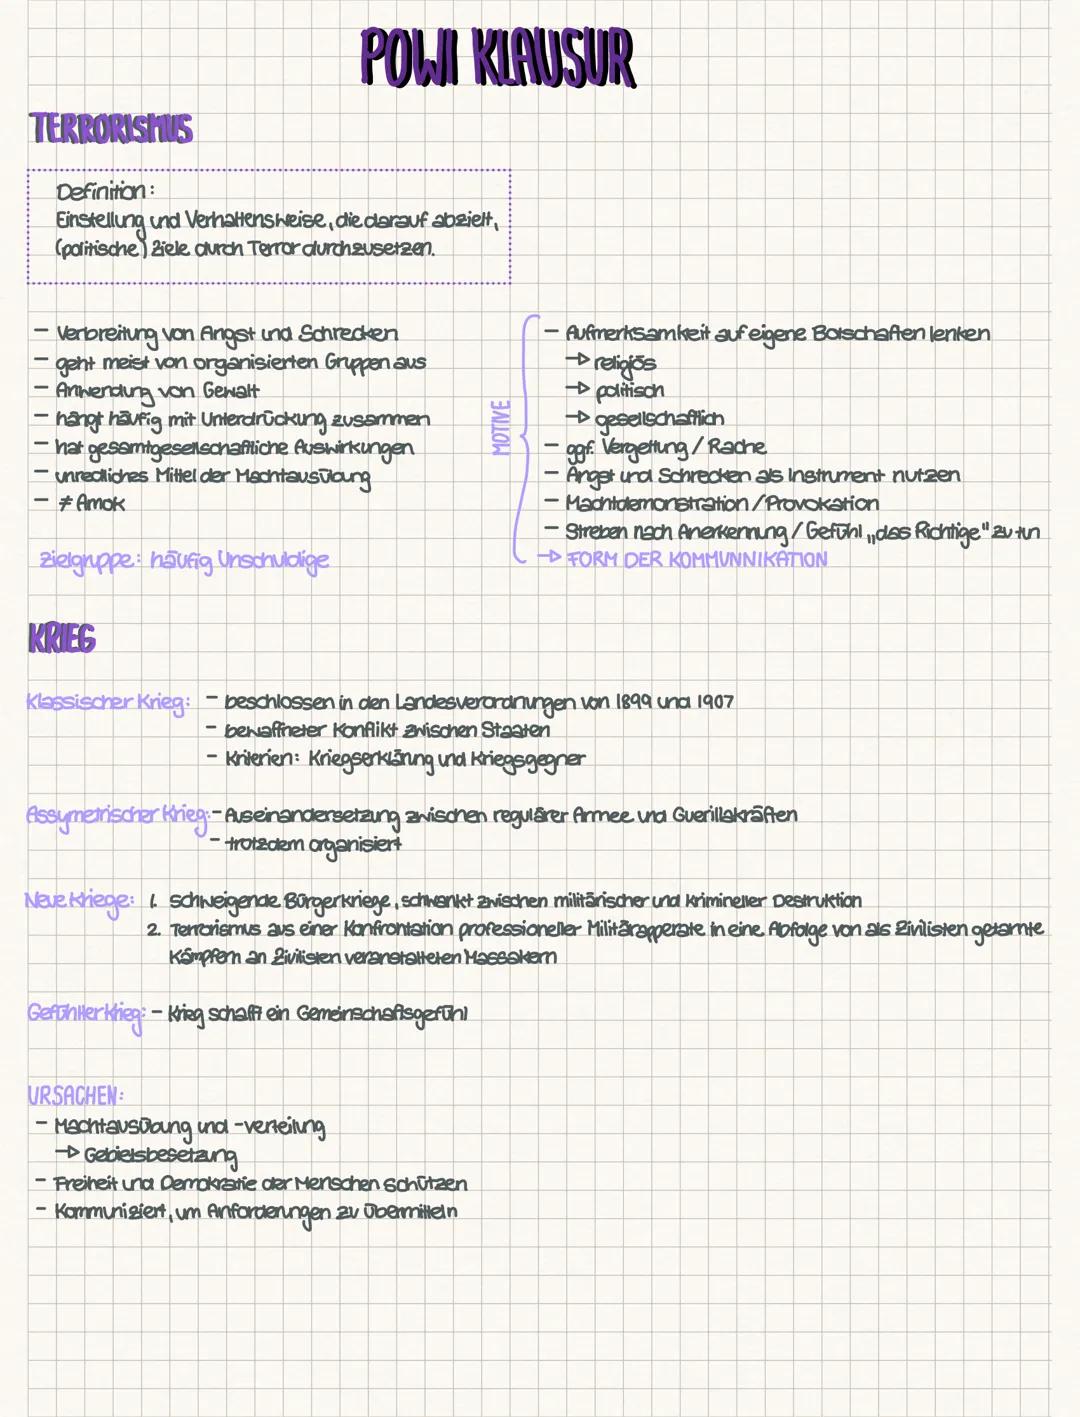 POWI KLAUSUR
TERRORISMUS
Definition:
Einstellung und Verhaltensweise, die darauf abzielt,
(politische) Ziele durch Terror durchzusetzen.
- Verbreitung von Angst und Schrecken
- geht meist von organisierten Gruppen aus
- Anwendung von Gewalt
- hängt häufig mit Unterdrückung zusammen
- hat gesamtgesellschaftliche Auswirkungen
- unredliches Mittel der Machtausübung
- ≠ Amok
Zielgruppe: häufig Unschuldige
MOTIVE
- Aufmerksamkeit auf eigene Botschaften lenken
→ religiös
→ politisch
→ gesellschaftlich
- ggf. Vergeltung / Rache
- Angst und Schrecken als Instrument nutzen
- Machtdemonstration / Provokation
- Streben nach Anerkennung / Gefühl „das Richtige" zu tun
→ FORM DER KOMMUNNIKATION
KRIEG
Klassischer Krieg: - beschlossen in den Landesverordnungen von 1899 und 1907
- bewaffneter Konflikt zwischen Staaten
- Kriterien: Kriegserklärung und Kriegsgegner
Assymetrischer Krieg: - Auseinandersetzung zwischen regulärer Armee und Guerillakräften
- trotzdem organisiert
Neue Kriege: 1. schweigende Bürgerkriege, schwankt zwischen militärischer und krimineller Destruktion
2. Terrorismus aus einer Konfrontation professioneller Militärapperate in eine Abfolge von als Zivilisten getarnte
Kämpfern an Zivilisten veranstalteten Massakern
Gefühlter Krieg: - Krieg schafft ein Gemeinschaftsgefühl
URSACHEN:
- Machtausübung und -verteilung
→ Gebietsbesetzung
- Freiheit und Demokratie der Menschen schützen
- Kommuniziert, um Anforderungen zu übermitteln